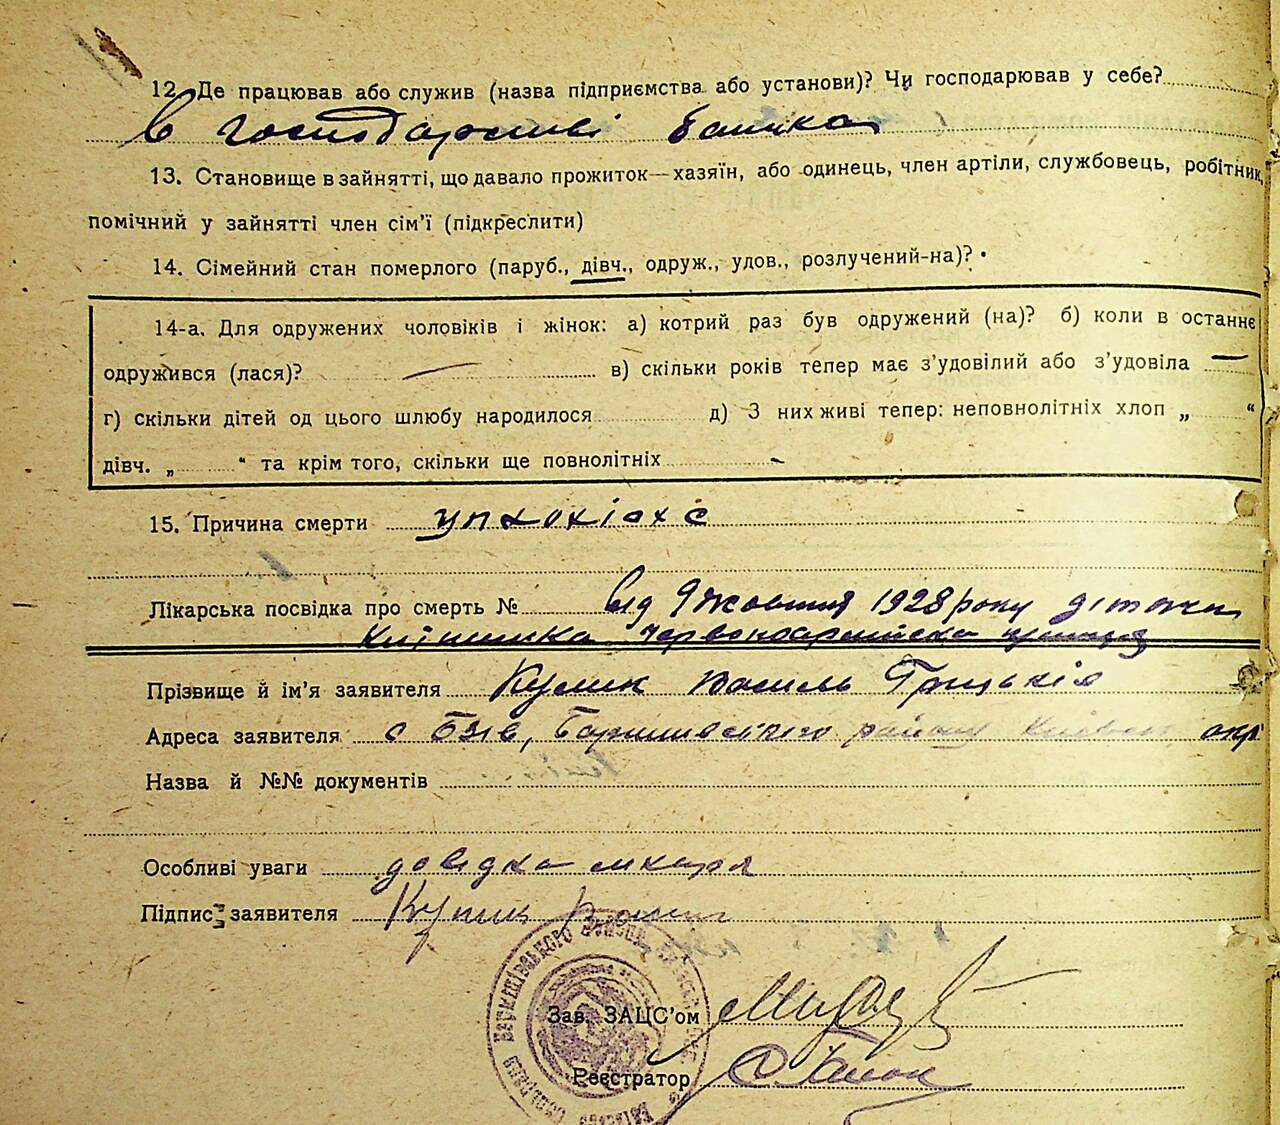 12. Де працював або служив (назва підприємства або установи)? Чи господарював у себе?
в господарстві батька
13. Становище в зайнятті, що давало прожиток—хазяїн, або одинець, член артіли, службовець, робітник,
помічний у зайнятті член сім'ї (підкреслити)
14. Сімейний стан померлого (паруб., дівч., одруж., удов., розлучений-на)?
14-а. Для одружених чоловіків і жінок: а) котрий раз був одружений (на)? б) коли в останнє
одружився (лася)? — в) скільки років тепер має з'удовілий або з'удовіла —
г) скільки дітей од цього шлюбу народилося д) З них живі тепер: неповнолітніх хлоп „ “
дівч. „ “ та крім того, скільки ще повнолітніх -
15. Причина смерти
Лікарська посвідка про смерть № від 9 жовтня 1928 року
Прізвище й ім'я заявителя Кулик Василь
Адреса заявителя с Бзів, Баришівського району Київськ окр
Назва й №№ документів
Особливі уваги довідка лікаря
Підпис заявителя Кулик
Зав. ЗАЦС'ом
Реєстратор